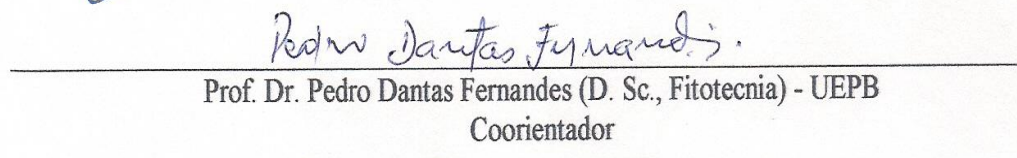 Pedro Dantas Fernandes.
Prof. Dr. Pedro Dantas Fernandes (D. Sc., Fitotecnia) - UEPB
Coorientador